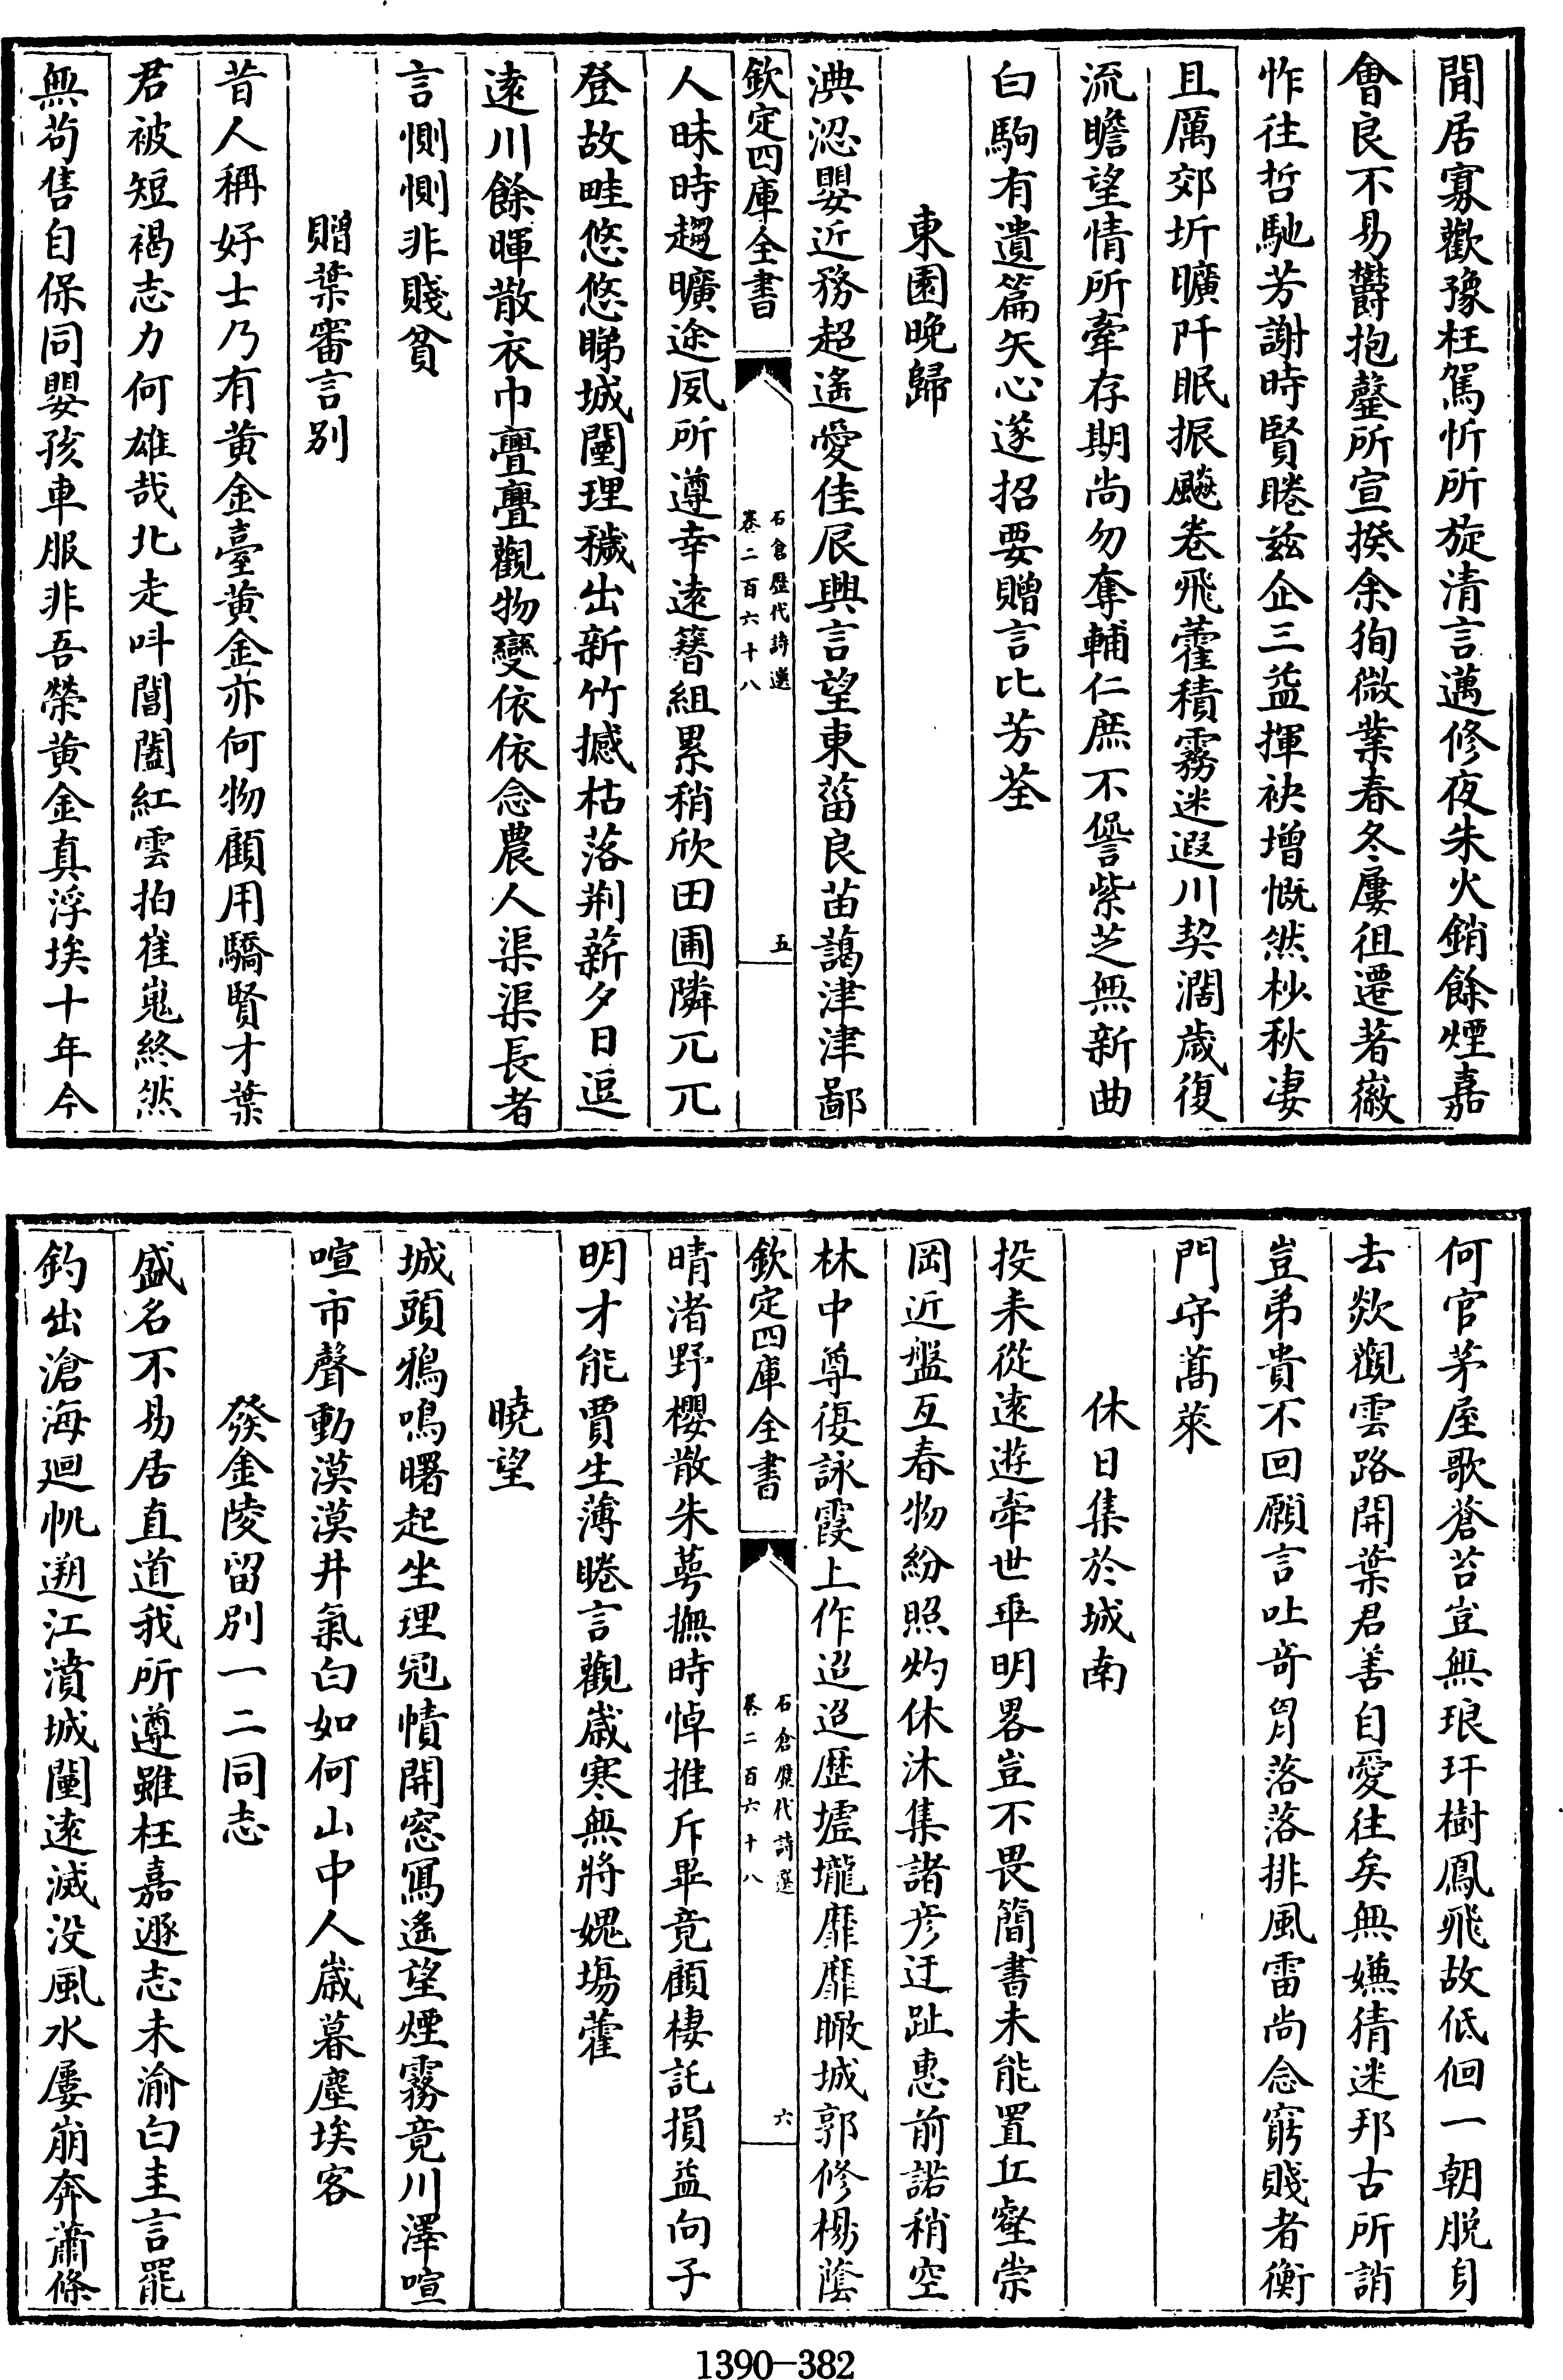 閒居寡歡豫枉駕忻所旋清言邁修夜朱火銷餘煙嘉
會良不易鬱抱罄所宣揆余徇微業春冬屢徂遷著嶶
怍往哲馳芳謝時賢睠兹企三益揮袂增慨然杪秋凄
且厲郊圻曠阡眠振飈卷飛藿積霧迷遐川契濶歲復
流瞻望情所牽存期尚勿奪輔仁庶不諐紫芝無新曲
白駒有遺篇矢心遂招要贈言比芳荃
東園晚歸
淟涊嬰近務超遙愛佳辰興言望東菑良苗藹津津鄙
欽定四庫全書
石倉歷代詩選
卷二百六十八
五
人昧時趨曠途夙所遵幸遠簪組累稍欣田圃隣兀兀
登故畦悠悠睇城闉理穢出新竹撼枯落荆薪夕日逗
遠川餘暉散衣巾亹亹觀物變依依念農人渠渠長者
言惻惻非賤貧
贈葉審言别
昔人稱好士乃有黄金臺黄金亦何物顧用驕賢才葉
君被短褐志力何雄哉北走呌閶闔紅雲拍崔嵬終然
無苟售自保同嬰孩車服非吾榮黄金真浮埃十年今
何官茅屋歌蒼苔豈無琅玕樹鳳飛故低佪一朝脱身
去欻觀雲路開葉君善自愛往矣無嫌猜迷邦古所誚
豈弟貴不回願言吐奇胷落落排風雷尚念窮賤者衡
門守蒿萊
休日集於城南
投耒從遠遊牽世乖明畧豈不畏簡書未能置丘壑崇
岡近盤互春物紛照灼休沐集諸彦迂趾惠前諾稍空
林中尊復詠霞上作迢迢歷墟壠靡靡瞰城郭修楊蔭
欽定四庫全書
石倉歷代詩選
卷二百六十八
六
晴渚野櫻散朱萼撫時悼推斥畢竟顧棲託損益向子
明才能賈生薄睠言觀歲寒無將媿塲藿
曉望
城頭鴉鳴曙起坐理冠幘開窓冩遙望煙霧竟川澤喧
喧市聲動漠漠井氣白如何山中人歲暮塵埃客
發金陵留别一二同志
盛名不易居直道我所遵雖枉嘉遯志未渝白圭言罷
釣出滄海廻帆遡江濆城闉遠滅没風水屢崩奔蕭條
1390-382